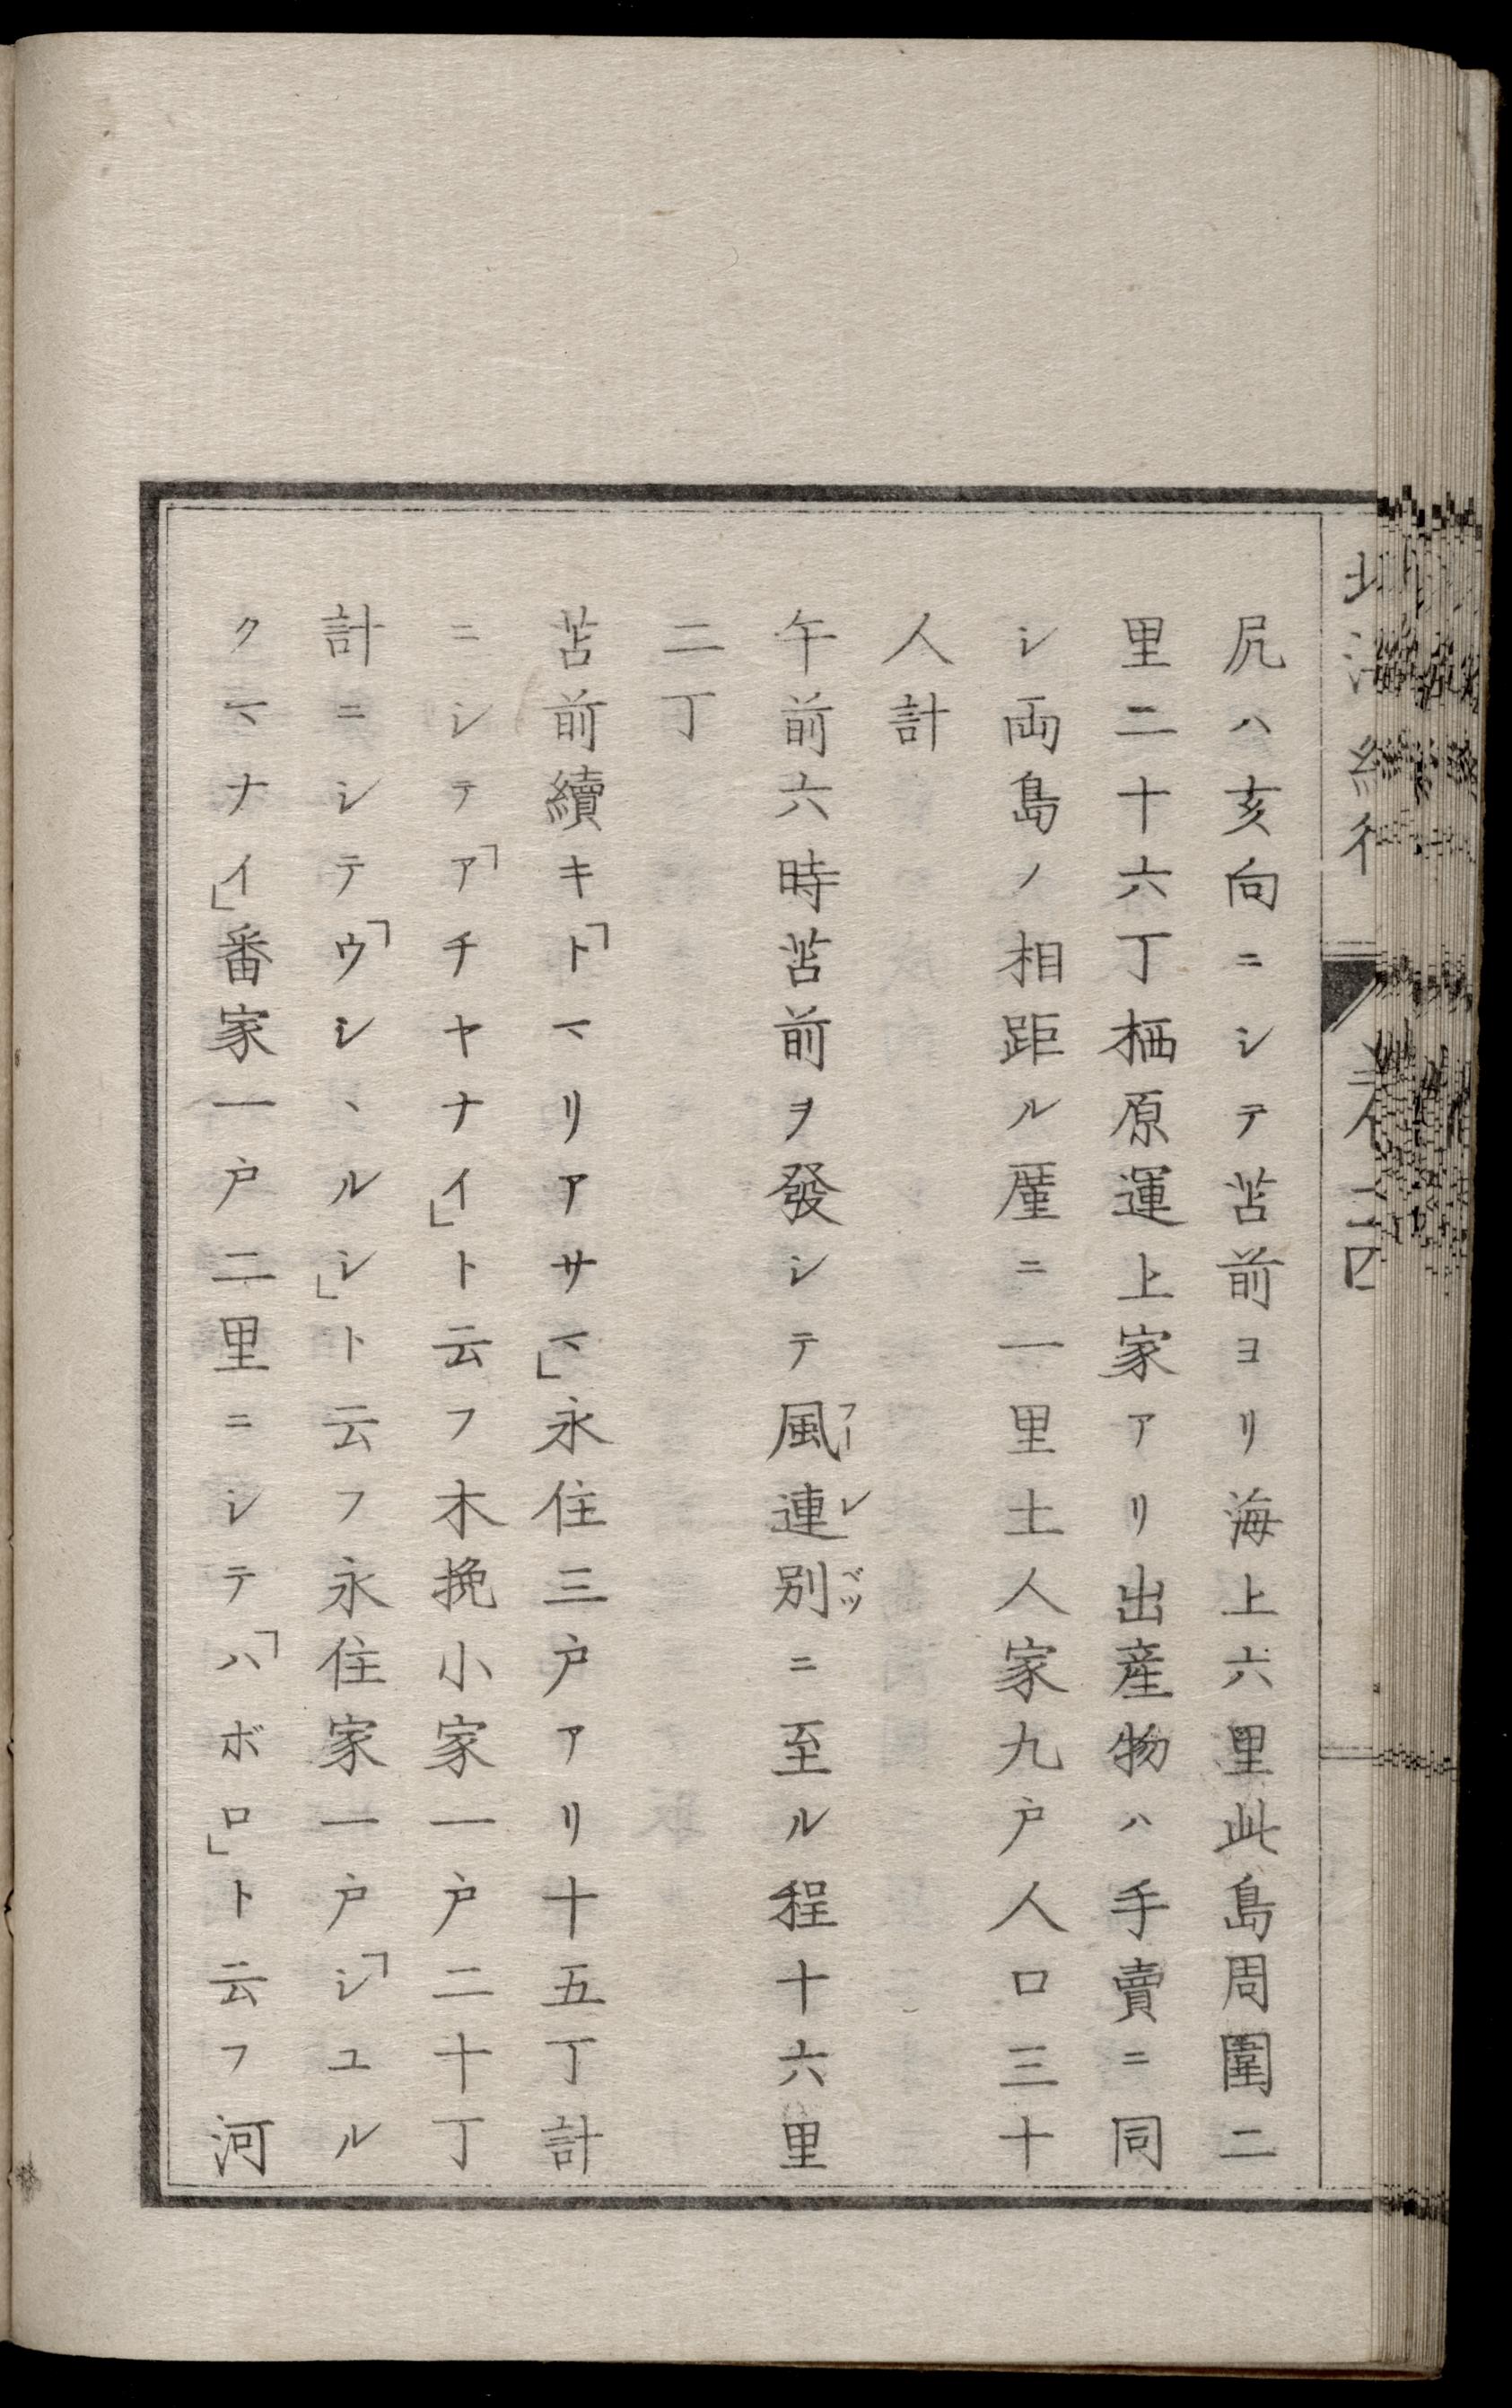 尻ハ亥向ニシテ苫前ヨリ海上六里此島周圍二
里二十六丁栖原運上家アリ出産物ハ手賣ニ同
シ両島ノ相距ル厪ニ一里土人家九戸人口三十
人計
午前六時苫前ヲ發シテ風連別ニ至ル程十六里
フーレベツ
二丁
苫前續キ「トマリアサマ」永住三戸アリ十五丁計
ニシテ「アチヤナイ」ト云フ木挽小家一戸二十丁
計ニシテ「ウシヽルシ」ト云フ永住家一戸「シユル
クマナイ」番家一戸二里ニシテ「ハボロ」ト云フ河